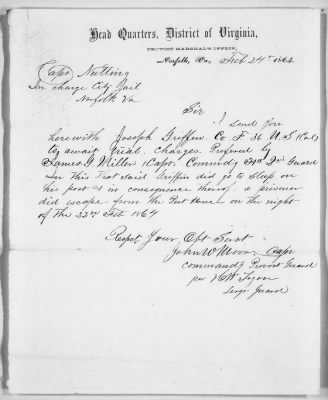 Head Quarters, District of Virginia,
PROVOST MARSHAL'S OFFICE,
Norfolk, Va., Feb 24th 1864
Capt Nutting
In charge City Jail
Norfolk Va
Sir
I send you
herewith Joseph Griffin Co F 36 U.S (Col)
to await trial. Charges Prefered by
James G. Miller Capt. Commdg Guard
In This That said Griffin did go to sleep on
his post & in consequence thereof, a prisoner
did escape from the on the night
of the 22nd Feb 1864
Respct Your Obt Servt
John W Moore Capt
commandg Provost Guard
per
Sergt Guard